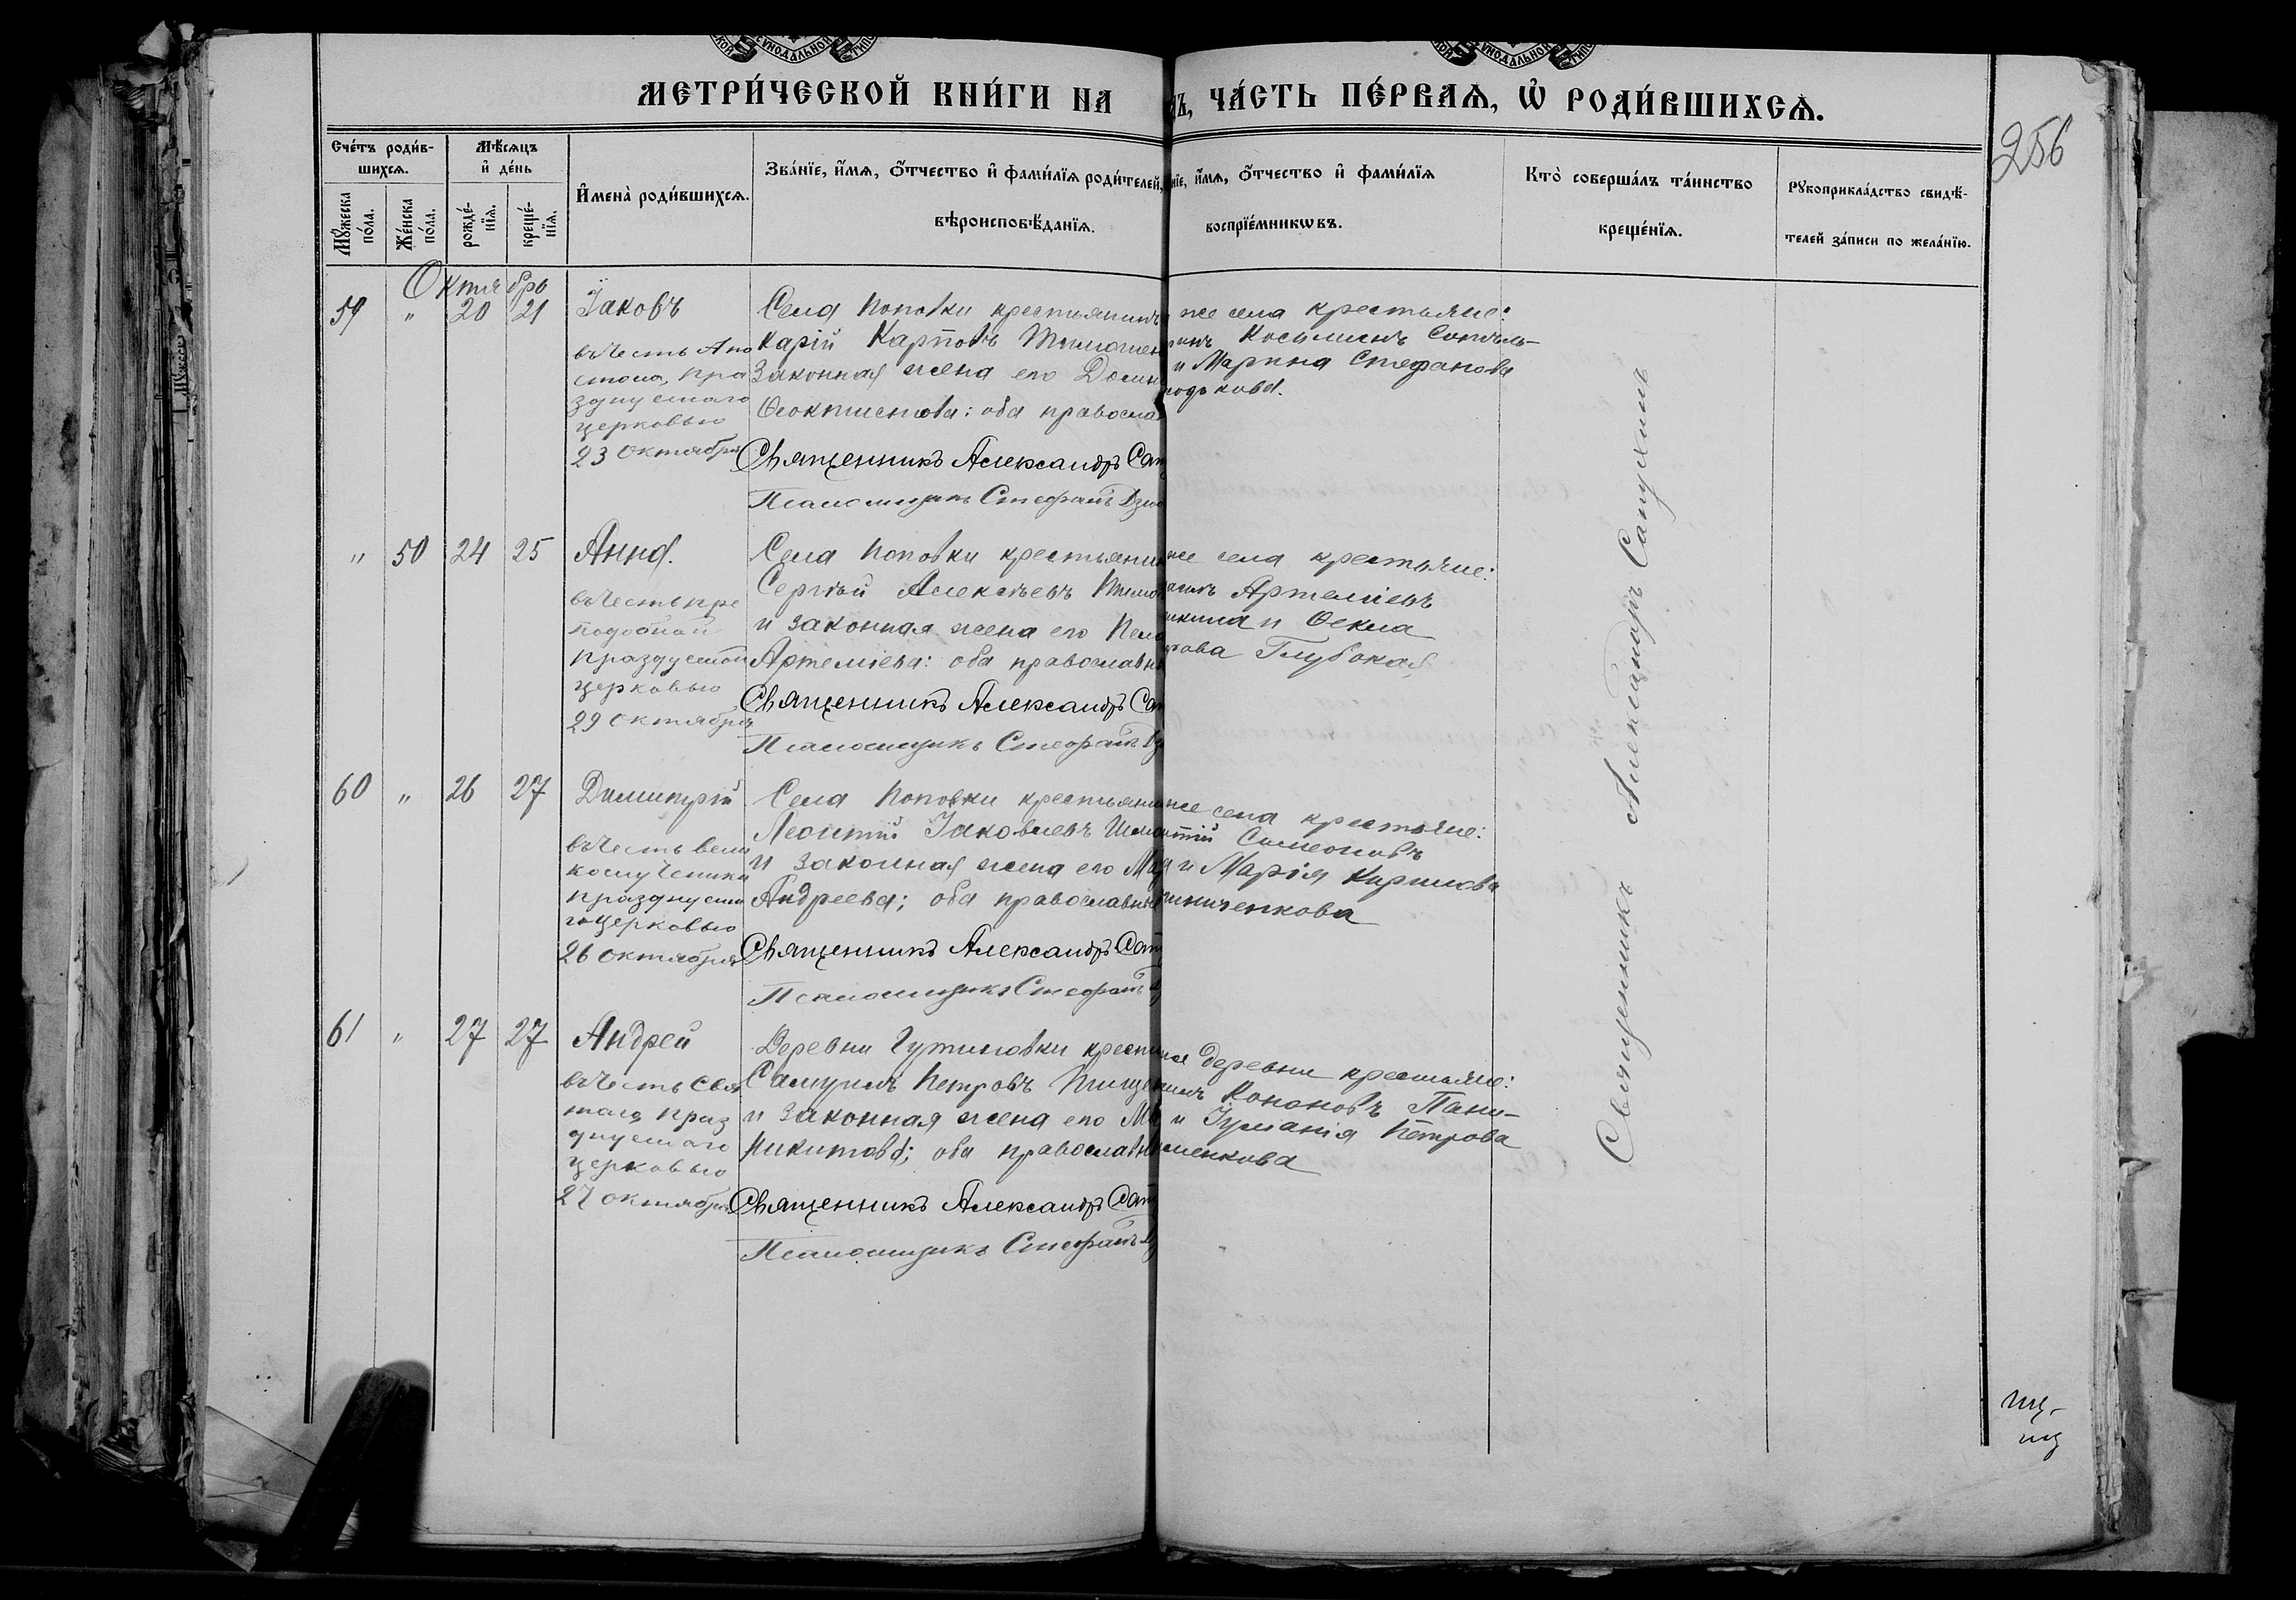 МЕТРИ́ЧЕСКОЙ КНИ́ГИ НА
Ъ, ЧА́СТЬ ПЕ́РВАѦ, Ѡ҆ РОДИ́ВШИХСѦ.
256
Сче́тъ роди́в-
шихсѧ.
Мѣ́сяцъ
и҆ де́нь
Мꙋ́жеска по́ла.
Же́нска по́ла.
рожде́-
нїѧ.
креще́-
нїѧ.
И҆мена̀ роди́вшихсѧ.
Зва́нїе, и҆́мѧ, ѻ҆́тчество и҆ фами́лїѧ роди́телей,
вѣроисповѣ́данїѧ.
нїе, и҆́мѧ, ѻ҆́тчество и҆ фами́лїѧ
воспрїе́мникѡвъ.
Кто̀ соверша́лъ та́инство
креще́нїѧ.
Рꙋкоприкла́дство свидѣ́-
телей за́писи по жела́нїю.
Октябрь
59 " 20 21 Іаковъ
въ честь Апо
стола, пра
зднуемаго
церковью
23 Октября
Села Поповки крестьянинъ
карій Карповъ Тимошен
Законная жена его Домн
Ѳеоктистова: оба правосла
Священникъ Александръ Сап
Псаломщикъ Стефанъ Дзю
же села крестьяне:
Косьминъ
и Марина Стефанова
" 50 24 25 Анна.
въ честь пре
подобной
празднуемой
церковью
29 Октября
Села Поповки крестьянин
Сергѣй Алексѣевъ
и законная жена его Пела
Артеміева: оба православн
Священникъ Александръ Сап
Псаломщикъ Стефанъ Дз
же села крестьяне:
Артеміевъ
и Ѳекла
Глубокая
60 " 26 27 Димитрій
въ честь вели
комученика
празднуема
го церковью
26 Октября
Села Поповки крестьянин
Леонтій Іаковлевъ
и законная жена его Ма
Андреева; оба православны
Священникъ Александръ Сап
Псаломщикъ Стефанъ
же села крестьяне:
Симеоновъ
и Марія Кирилова
ниченкова
61 " 27 27 Андрей
въ честь Свя
таго, праз
днуемаго
церковью
27 Октября
Деревни Гутиловки крест
Самуилъ Петровъ Пище
и законная жена его Ма
Никитова; оба православн
Священникъ Александръ Сап
Псаломщикъ Стефанъ Дз
же деревни крестьяне:
Кононовъ Пани-
и Іуліанія Петрова
менкова
Священникъ Александръ Сапухинъ